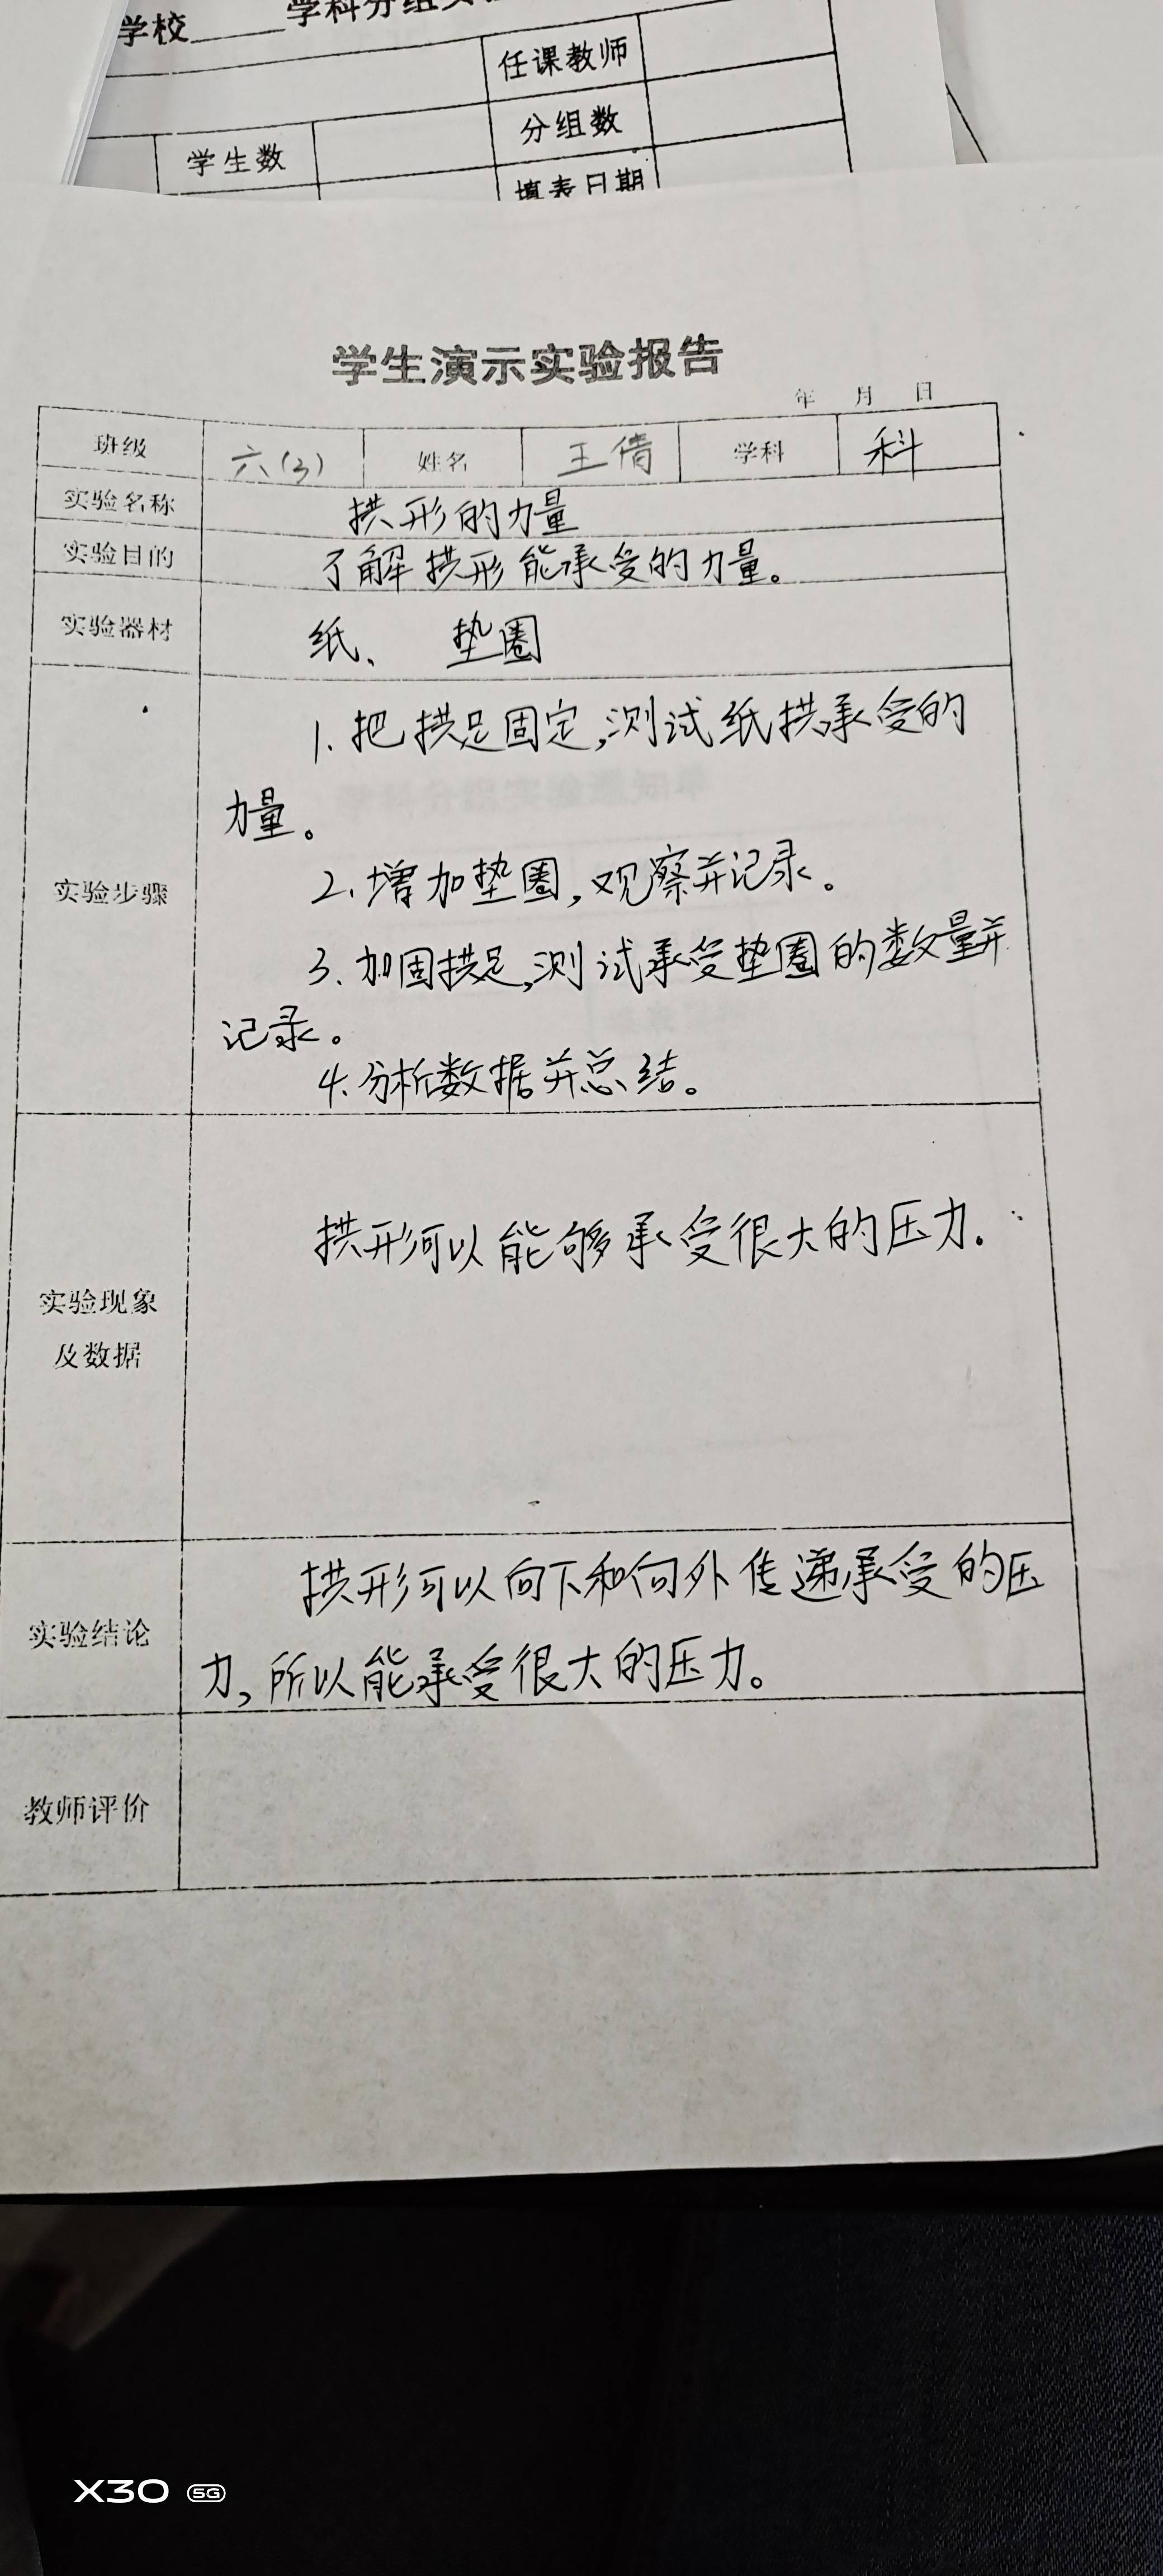 学校____学科分组实
任课教师
分组数
学生数
填表日期
学生演示实验报告
年 月 日
班级 六(3) 姓名 王倩 学科 科
实验名称 拱形的力量
实验目的 了解拱形能承受的力量。
实验器材 纸、 垫圈
1.把拱足固定,测试纸拱承受的
力量。
实验步骤 2.增加垫圈,观察并记录。
3.加固拱足,测试承受垫圈的数量并
记录。
4.分析数据并总结。
拱形可以能够承受很大的压力.
实验现象
及数据
拱形可以向下和向外传递承受的压
实验结论
力,所以能承受很大的压力。
教师评价
X30 5G